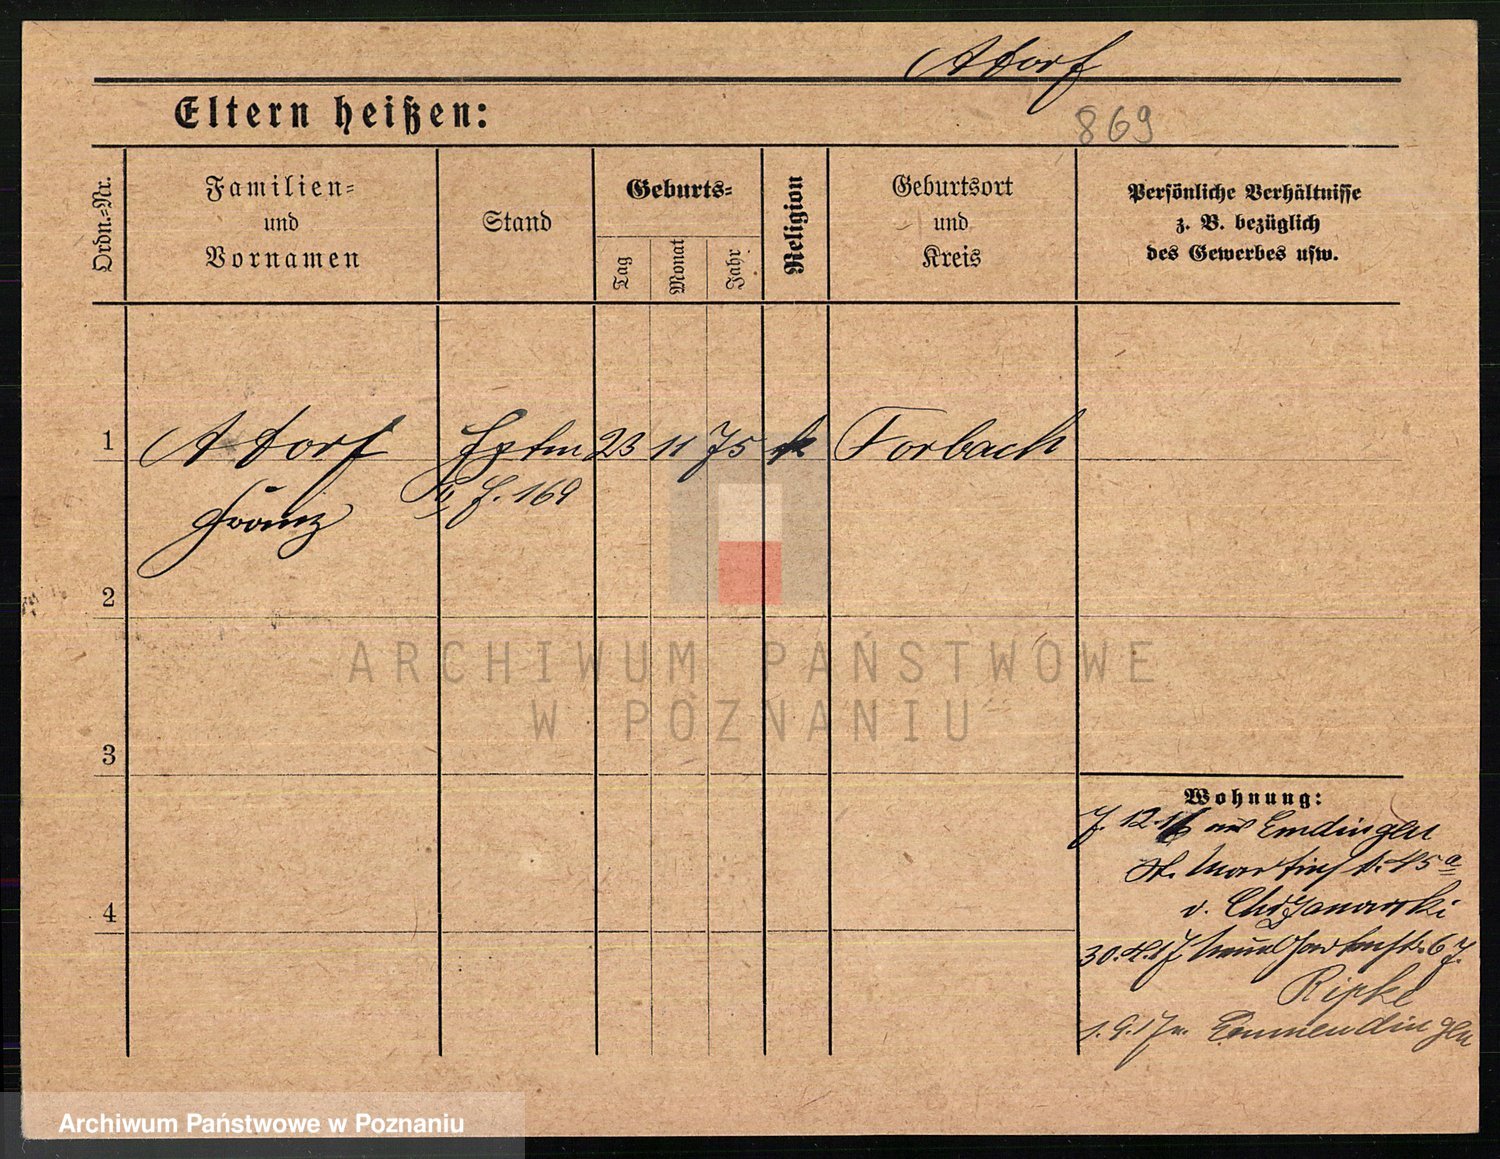 Adorf
Eltern heißen:
869
Ordn.-Nr.
Familien-
und
Vornamen
Stand
Geburts-
Tag
Monat
Jahr
Religion
Geburtsort
und
Kreis
Persönliche Verhältnisse
z. B. bezüglich
des Gewerbes usw.
1
Adorf
Hptm
23
11
75
k
Forbach
169
Franz
2
ARCHIWUM PAŃSTWOWE
W POZNANIU
3
Wohnung:
7. 12. 16 aus Emdingen
St. Martinstr. 45a
v. Chrzanowski
4
30. 4. 17 Neue Gartenstr. 67.
Ripke
1. 9. 17 n. Emmendingen
Archiwum Państwowe w Poznaniu